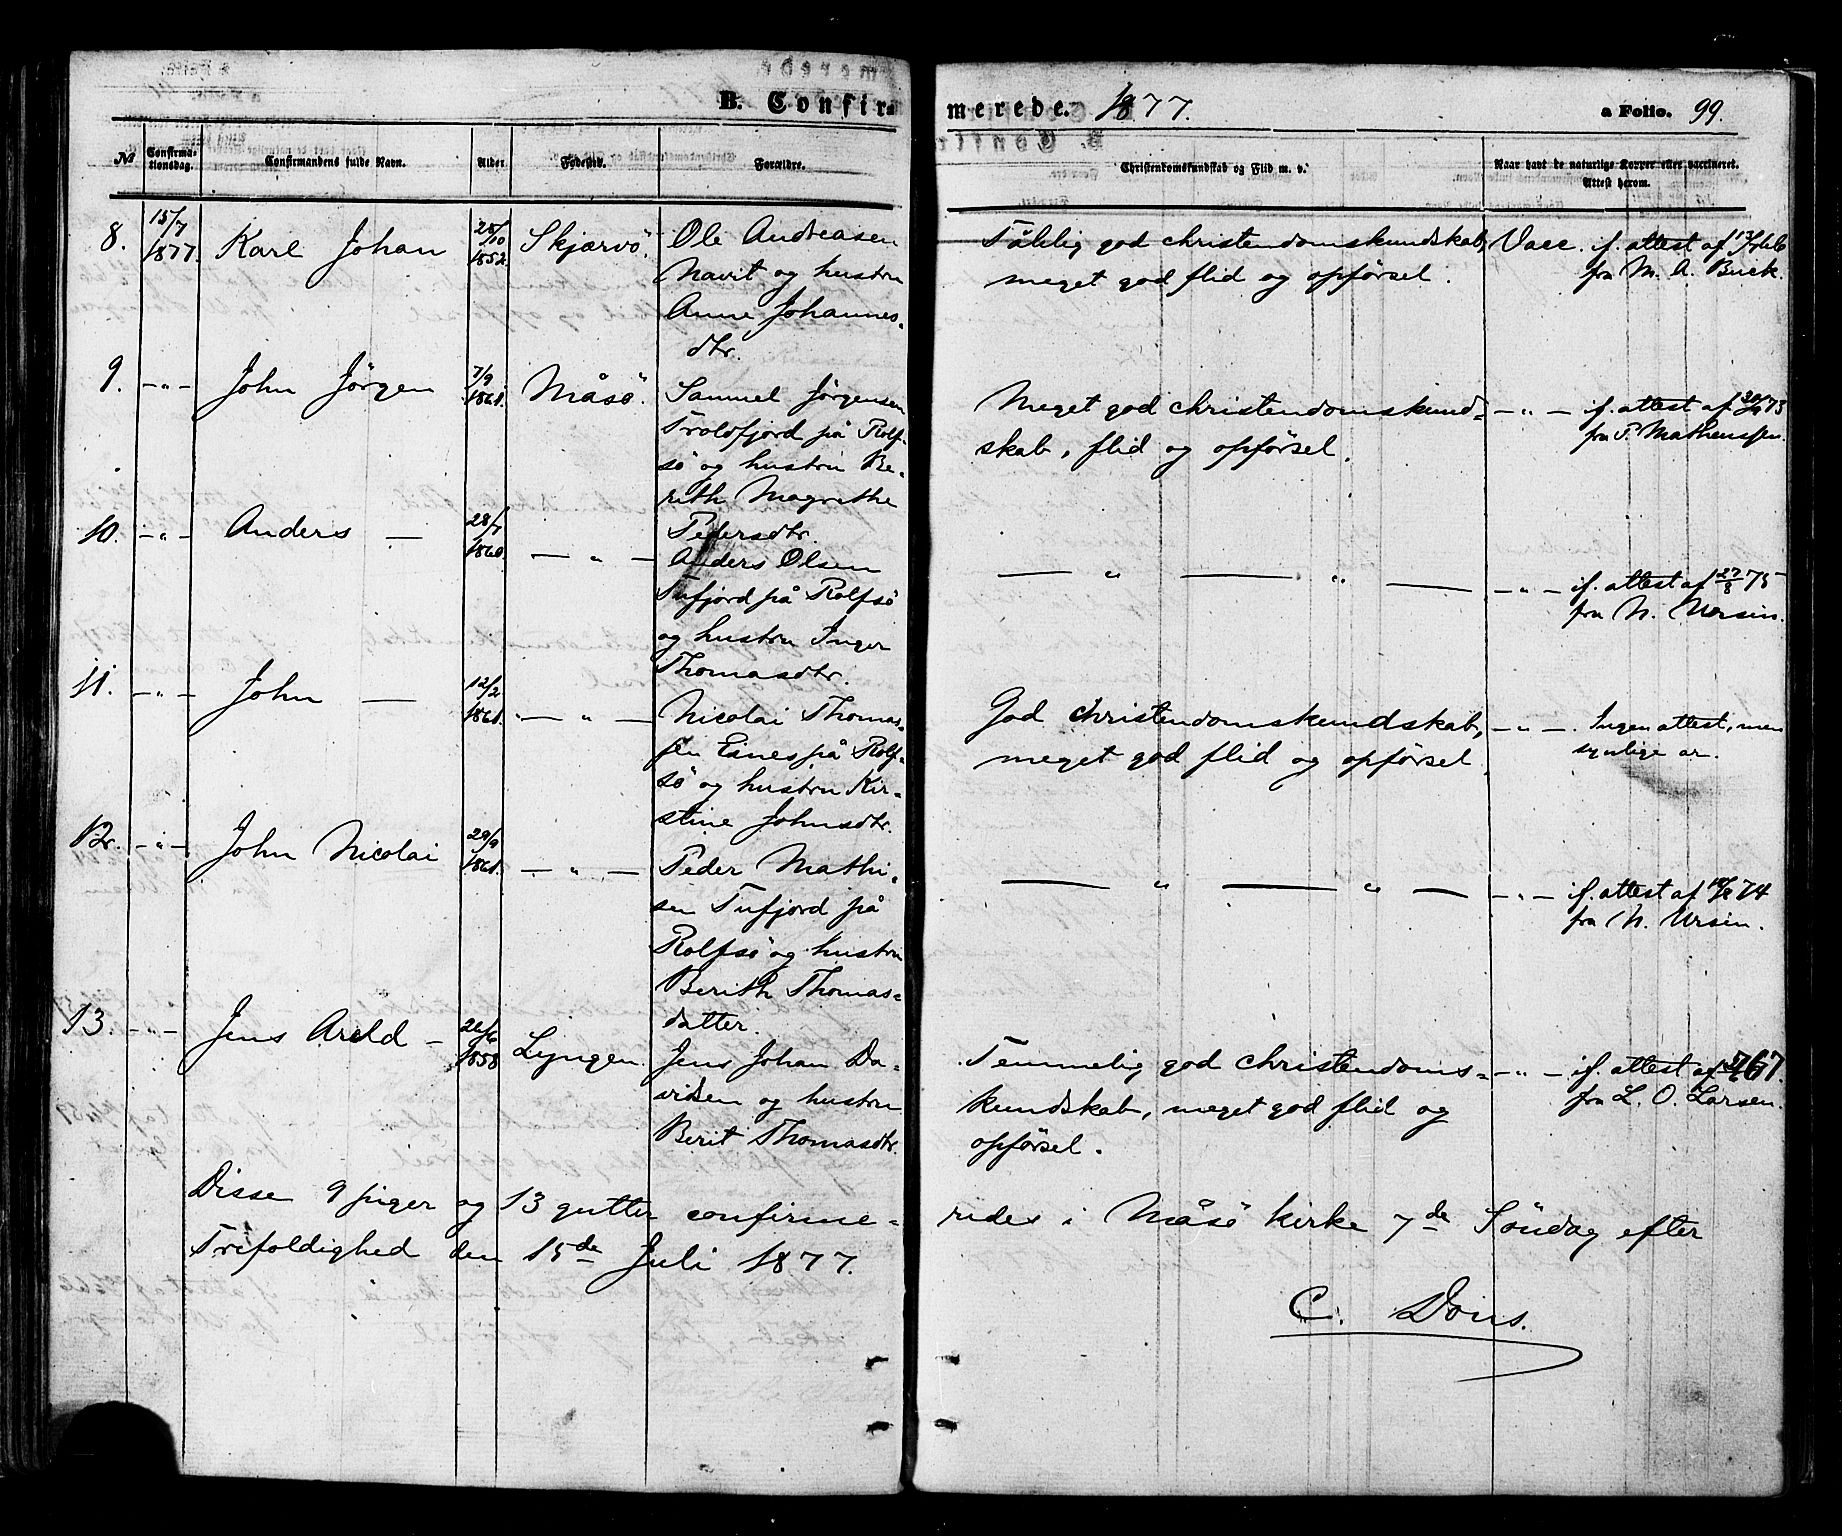 B. Confirmerede. 1877. a Folio. 99.
№ Confirmationsdag. Confirmandens fulde Navn. Alder. Fødested. Forældre. Christendomskundskab og Flid m. v. Naar havt de naturlige Kopper eller vaccineret. Attest herom.
8. 15/7 1877. Karl Johan 25/10 1852. Skjærvö. Ole Andreasen
Navit og hustru
Anne Johannes-
dtr.
Tålelig god christendomskundskab,
meget god flid og opførsel.
Vacc. if. attest af
fra M. A. Buck.
9. —"— John Jörgen 7/9 1861. Måsö. Samuel Jørgensen
Troldfjord på Rolf-
sö og hustru Be-
rith Magrethe
Petersdtr.
Meget god christendomskund-
skab, flid og opførsel.
—"— if. attest af 73
fra P. Mathenssen.
10. —"— Anders — 28/7 1860. —"— Anders Olsen
Tufjord på Rolfsö
og hustru Inger
Thomasdtr.
—"— —"— —"— if. attest af 27/8 75
fra N. Ursin.
11. —"— John — 12/2 1861. —"— Nicolai Thomas-
sen Eines på Rolf-
sö og hustru Kir-
stine Johnsdtr.
God christendomskundskab,
meget god flid og opførsel.
—"—. Ingen attest, men
synlige ar.
12. —"— John Nicolai 29/9 1861. —"— Peder Mathi-
sen Tufjord på
Rolfsö og hustru
Berith Thomas-
datter.
—"— —"— —"— if. attest af 74
fra N. Ursin.
13. —"— Jens Areld — 1858 Lyngen. Jens Johan Da-
vidsen og hustru
Berit Thomasdtr.
Temmelig god christendoms-
kundskab, meget god flid og
opførsel.
—"— if. attest af 67.
fra L. O. Larsen.
Disse 9 piger og 13 gutter confirme-
redes i Måsö kirke 7de Söndag efter
Trefoldighed den 15de Juli 1877.
C. Dons.